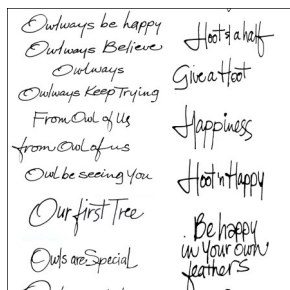 Owlways be happy
Owlways Believe
Owlways
Owlways Keep Trying
From Owl of Us
from Owl of us
Owl be seeing You
Our first Tree
Owls are Special
Hoot & a half
Give a Hoot
Happiness
Hoot 'n' Happy
Be happy
in Your own
feathers